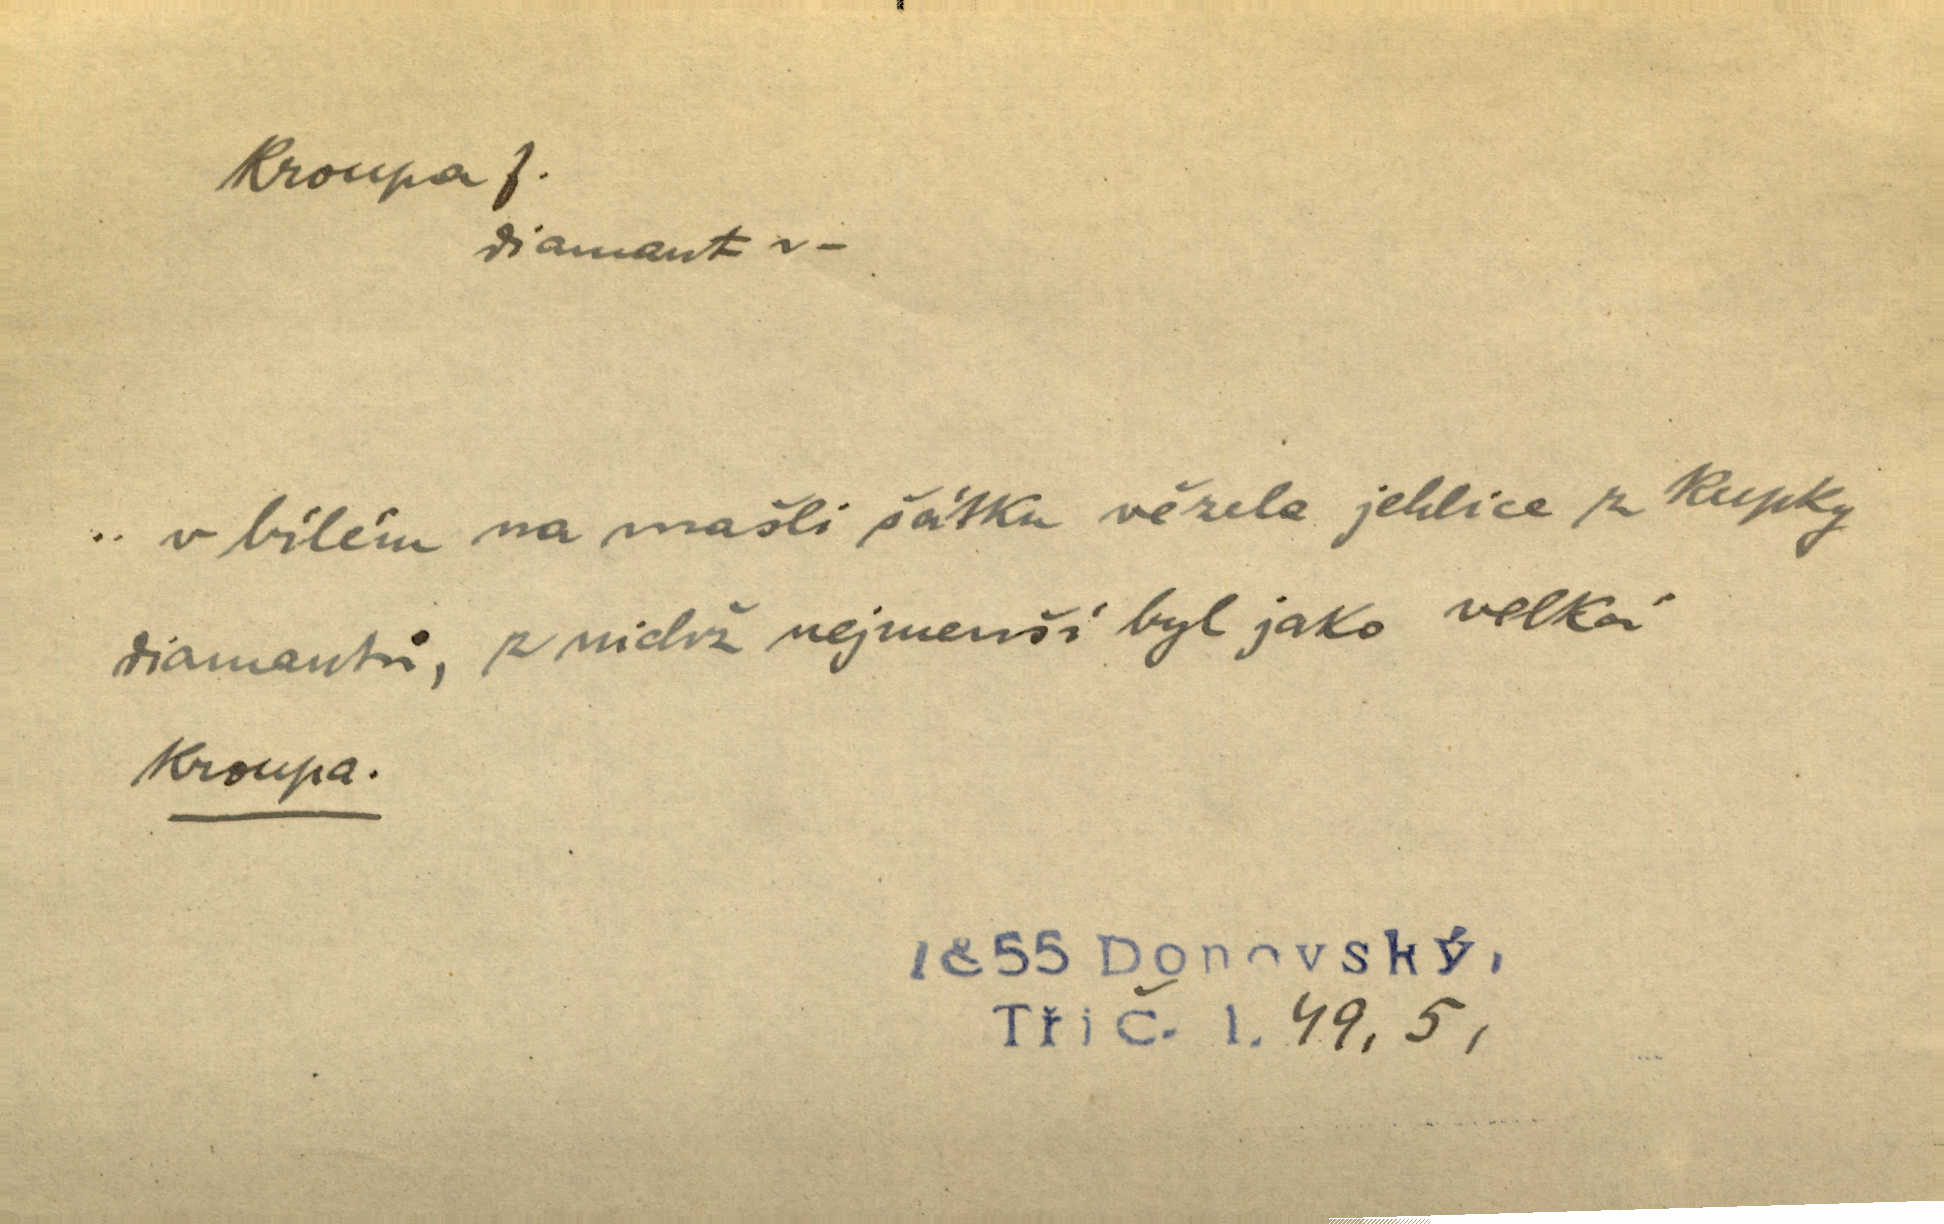 Kroupa f.
diamant v –
.. v bílém na mašli šátku vězela jehlice z kupky
diamantů, z nichž nejmenší byl jako velká
kroupa.
1855 Donovský,
Tři Č. 1. 49, 5,